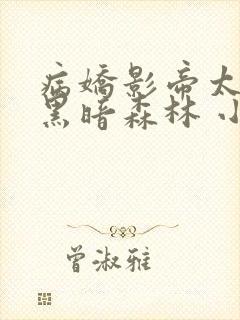 病嬌影帝太
黑暗森林 小
曾淑雅